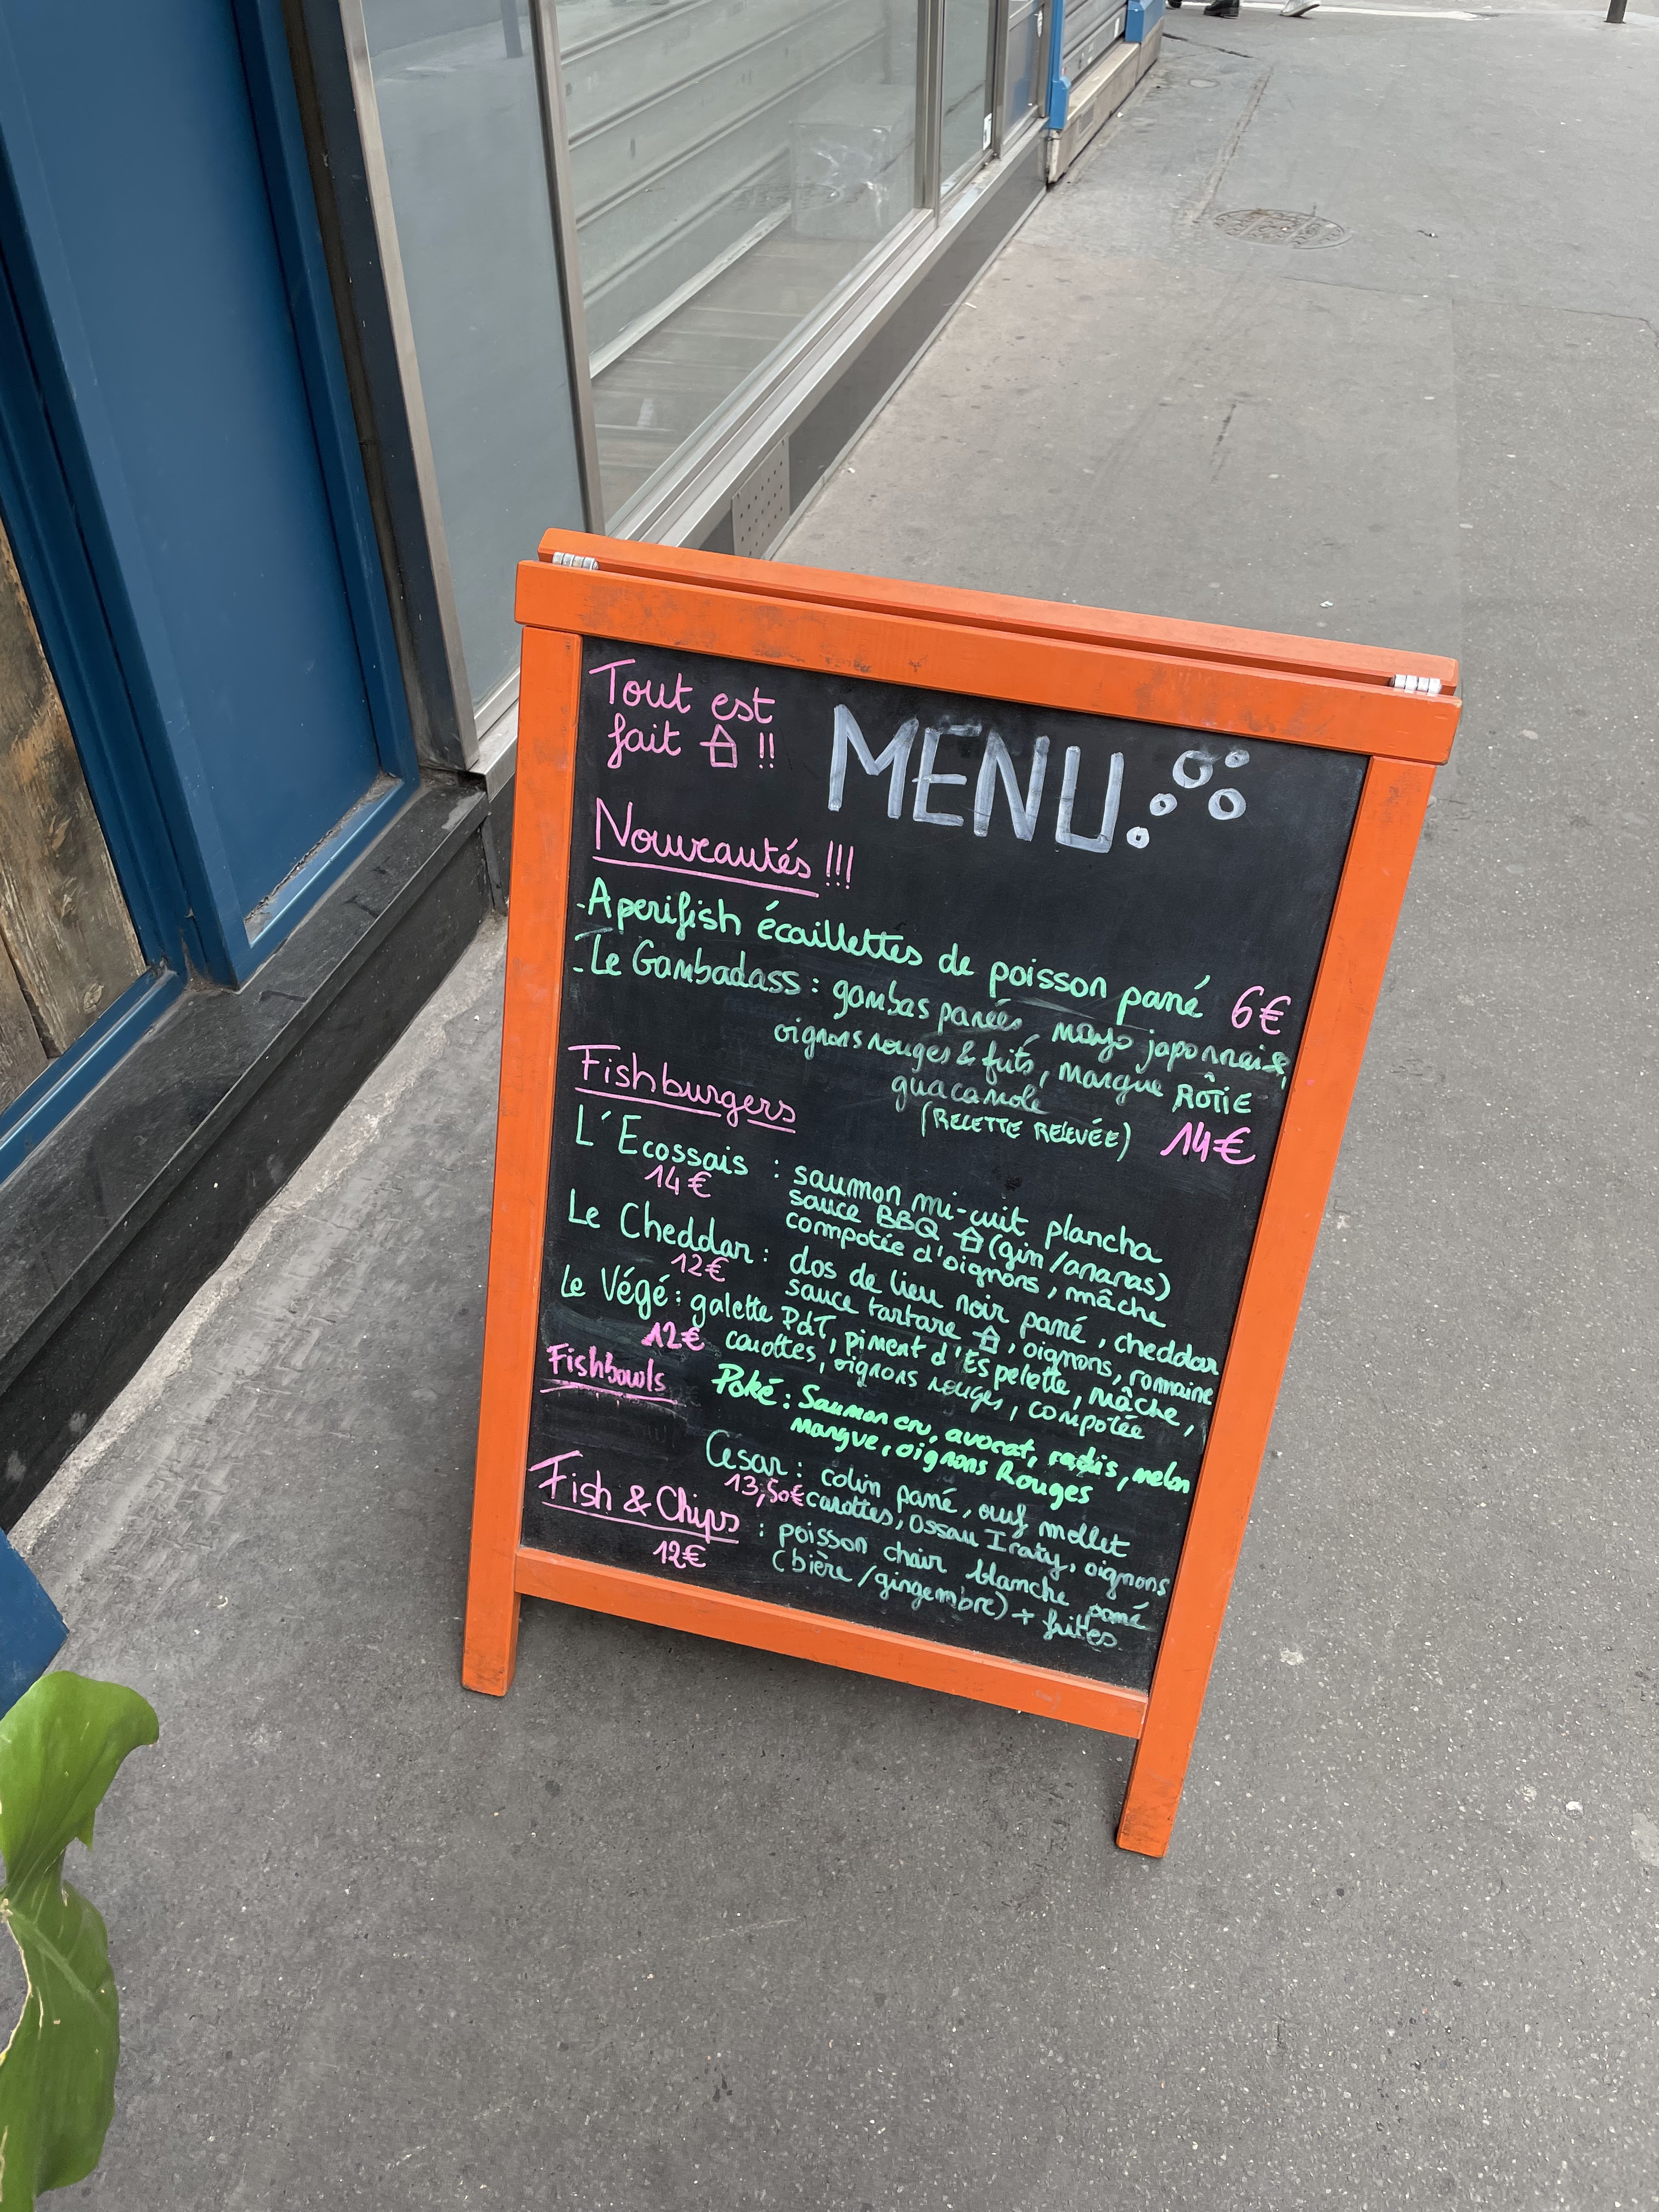 Tout est
fait !!
MENU
Nouveautés !!!
- Aperifish écaillettes de poisson pané 6€
- Le Gambadass : gambas panées, mayo japonnaise,
oignons rouges & frits, mangue RÔTIE
guacamole
(RECETTE RELEVÉE) 14€
Fishburgers
L'Ecossais : saumon mi-cuit plancha
14€ sauce BBQ (gin/ananas)
compotée d'oignons, mâche
Le Cheddar : dos de lieu noir pané, cheddar
12€ sauce tartare, oignons, romaine
Le Végé : galette PdT, piment d'Espelette, mâche,
12€ carottes, oignons rouges, compotée
Fishbowls
Poké : Saumon cru, avocat, radis, melon
mangue, oignons Rouges
Cesar : colin pané, œuf mollet
13,50€ carottes, Ossau Iraty, oignons
Fish & Chips : poisson chair blanche pané
12€ (bière/gingembre) + frites